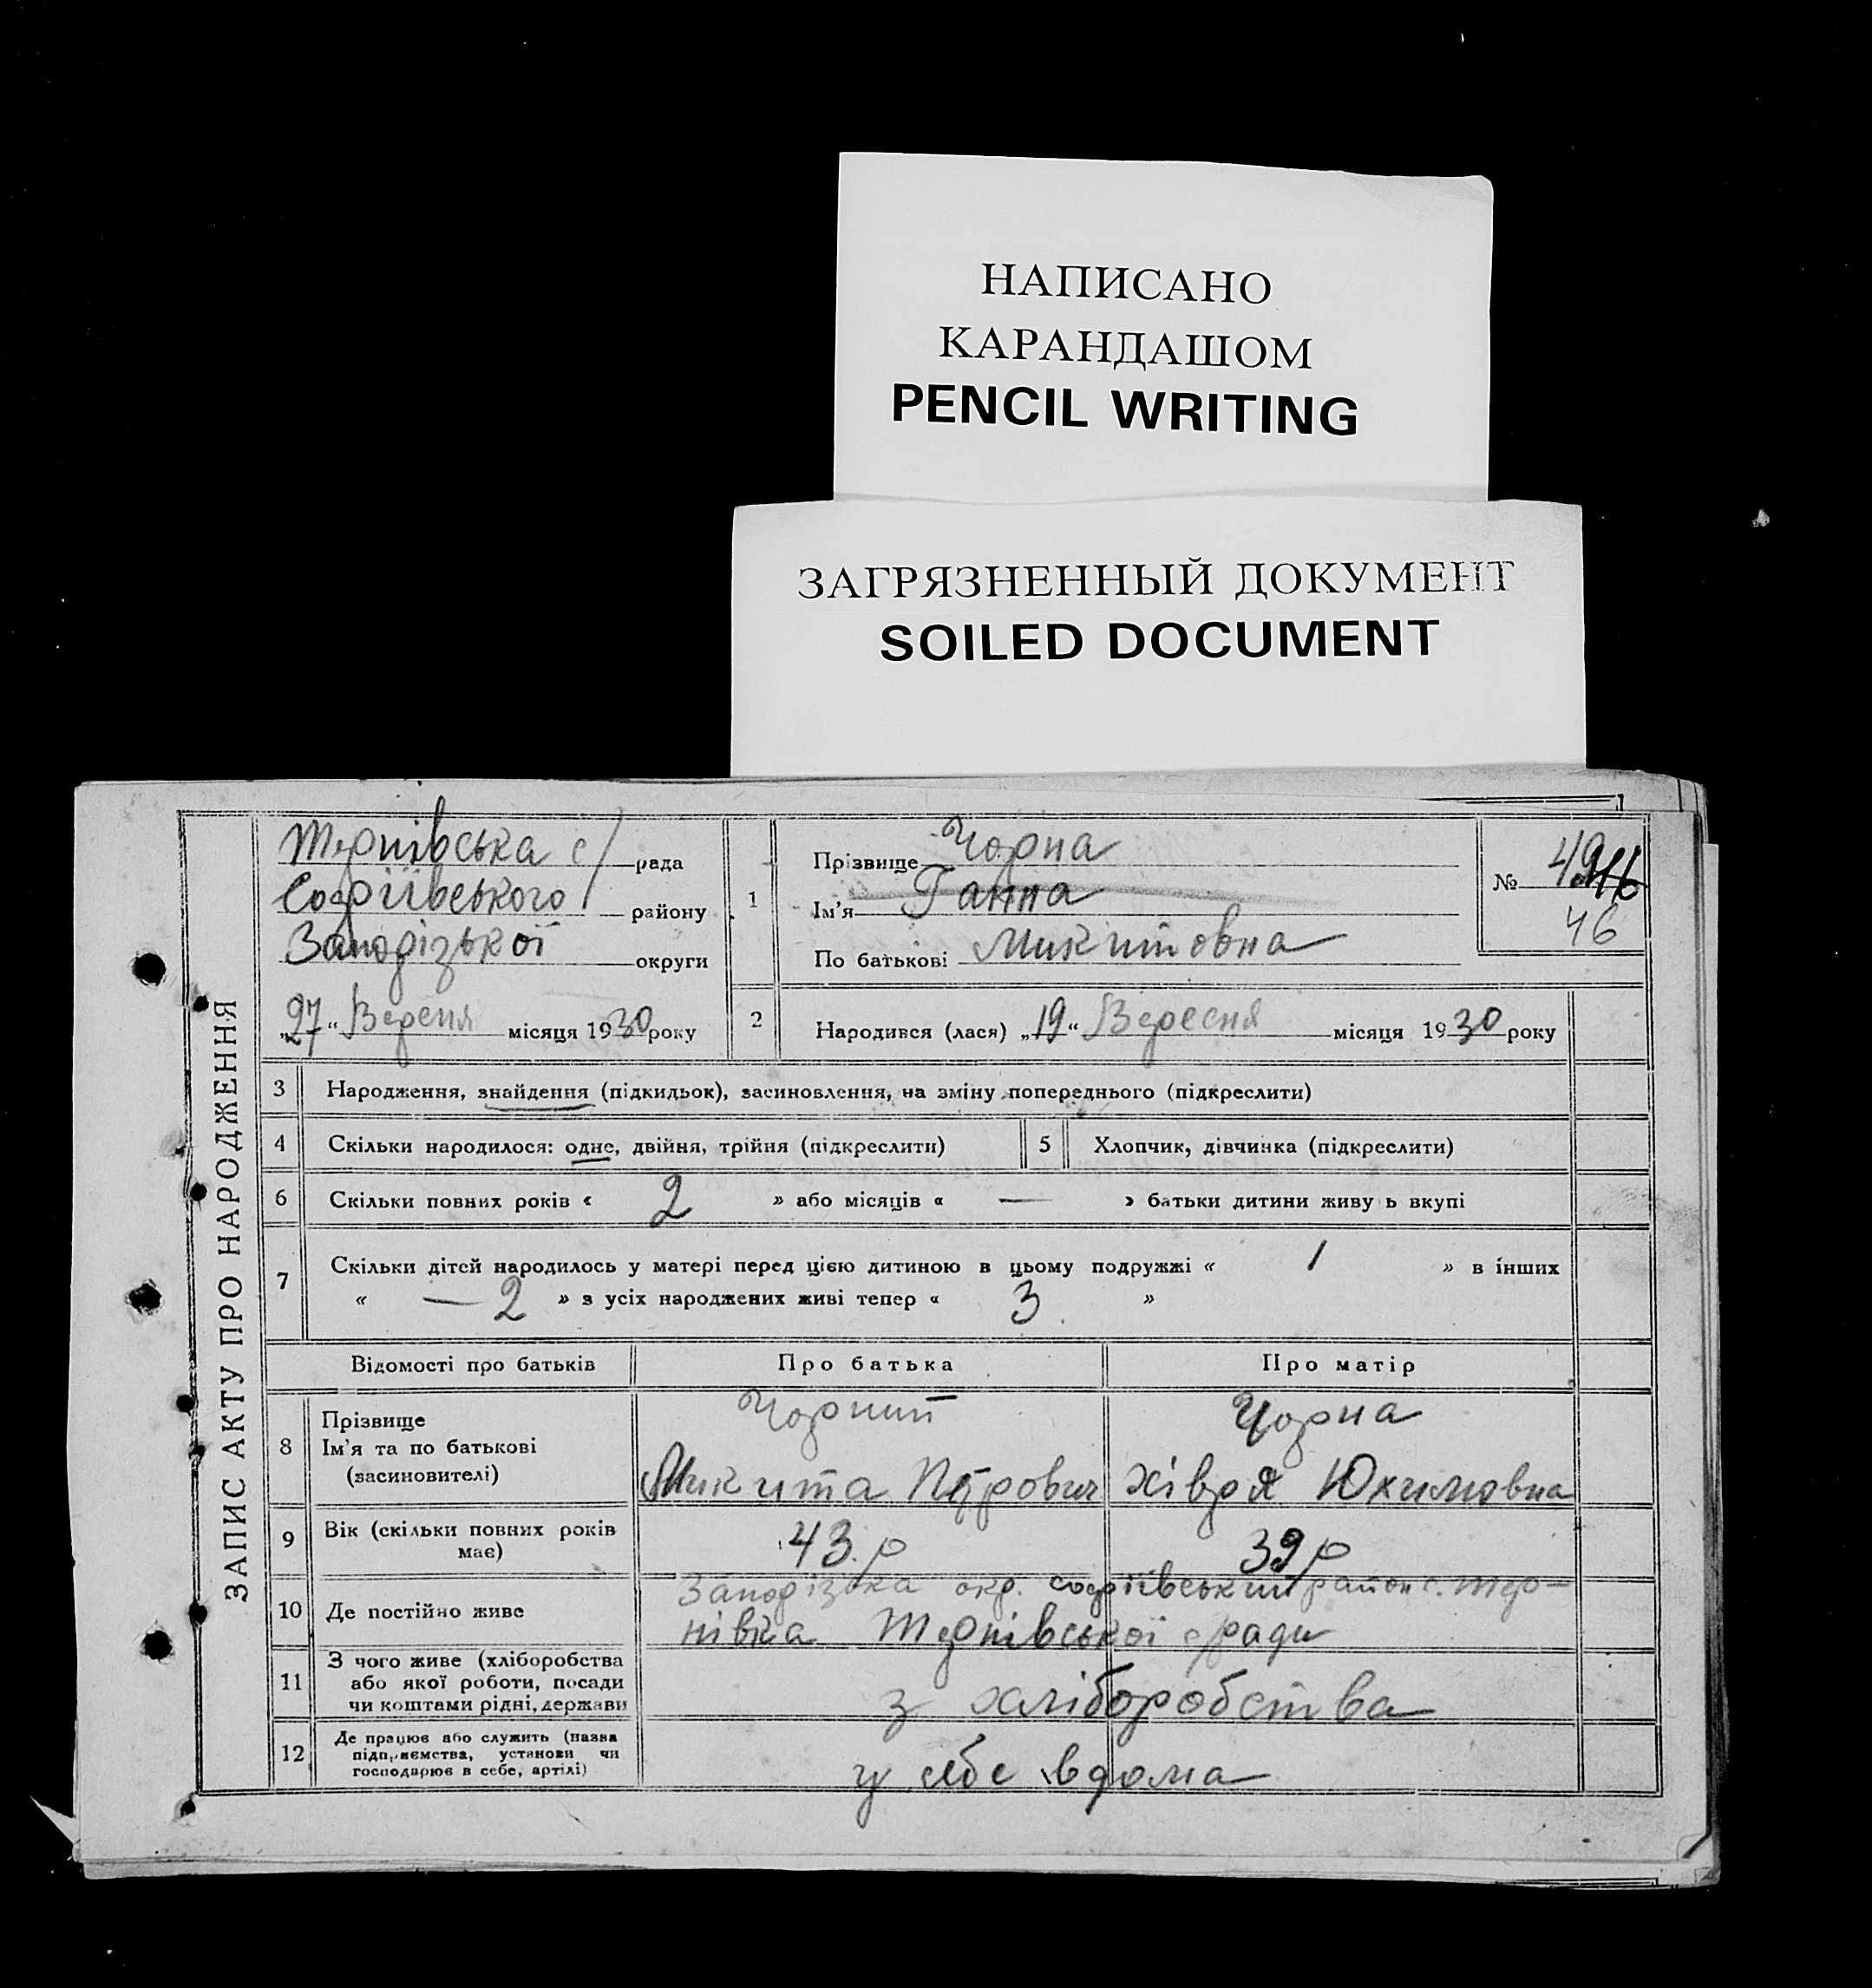 НАПИСАНО
КАРАНДАШОМ
PENCIL WRITING
ЗАГРЯЗНЕННЫЙ ДОКУМЕНТ
SOILED DOCUMENT
ЗАПИС АКТУ ПРО НАРОДЖЕННЯ
Тернівська с/рада
Софіївського району
Запорізької округи
„27“ Вересня місяця 1930 року
1
Прізвище Чорна
Ім'я Ганна
По батькові Микитовна
№ 49
46
2
Народився (лася) „19“ Вересня місяця 1930 року
3 Народження, знайдення (підкидьок), засиновлення, на зміну попереднього (підкреслити)
4 Скільки народилося: одне, двійня, трійня (підкреслити)
5 Хлопчик, дівчинка (підкреслити)
6 Скільки повних років « 2 » або місяців « — » батьки дитини живу ь вкупі
7 Скільки дітей народилось у матері перед цією дитиною в цьому подружжі « 1 » в інших
« — 2 » з усіх народжених живі тепер « 3 »
Відомості про батьків Про батька Про матір
8 Прізвище
Ім'я та по батькові
(засиновителі)
Чорний
Микита Петрович
Чорна
Хівря Юхимовна
9 Вік (скільки повних років
має)
43 р
39 р
10 Де постійно живе
Запорізька окр. Софіївський район с. Тер-
нівка Тернівської с/ради
11 З чого живе (хліборобства
або якої роботи, посади
чи коштами рідні, держави
з хліборобства
12 Де працює або служить (назва
підприємства, установи чи
господарює в себе, артілі)
у себе вдома